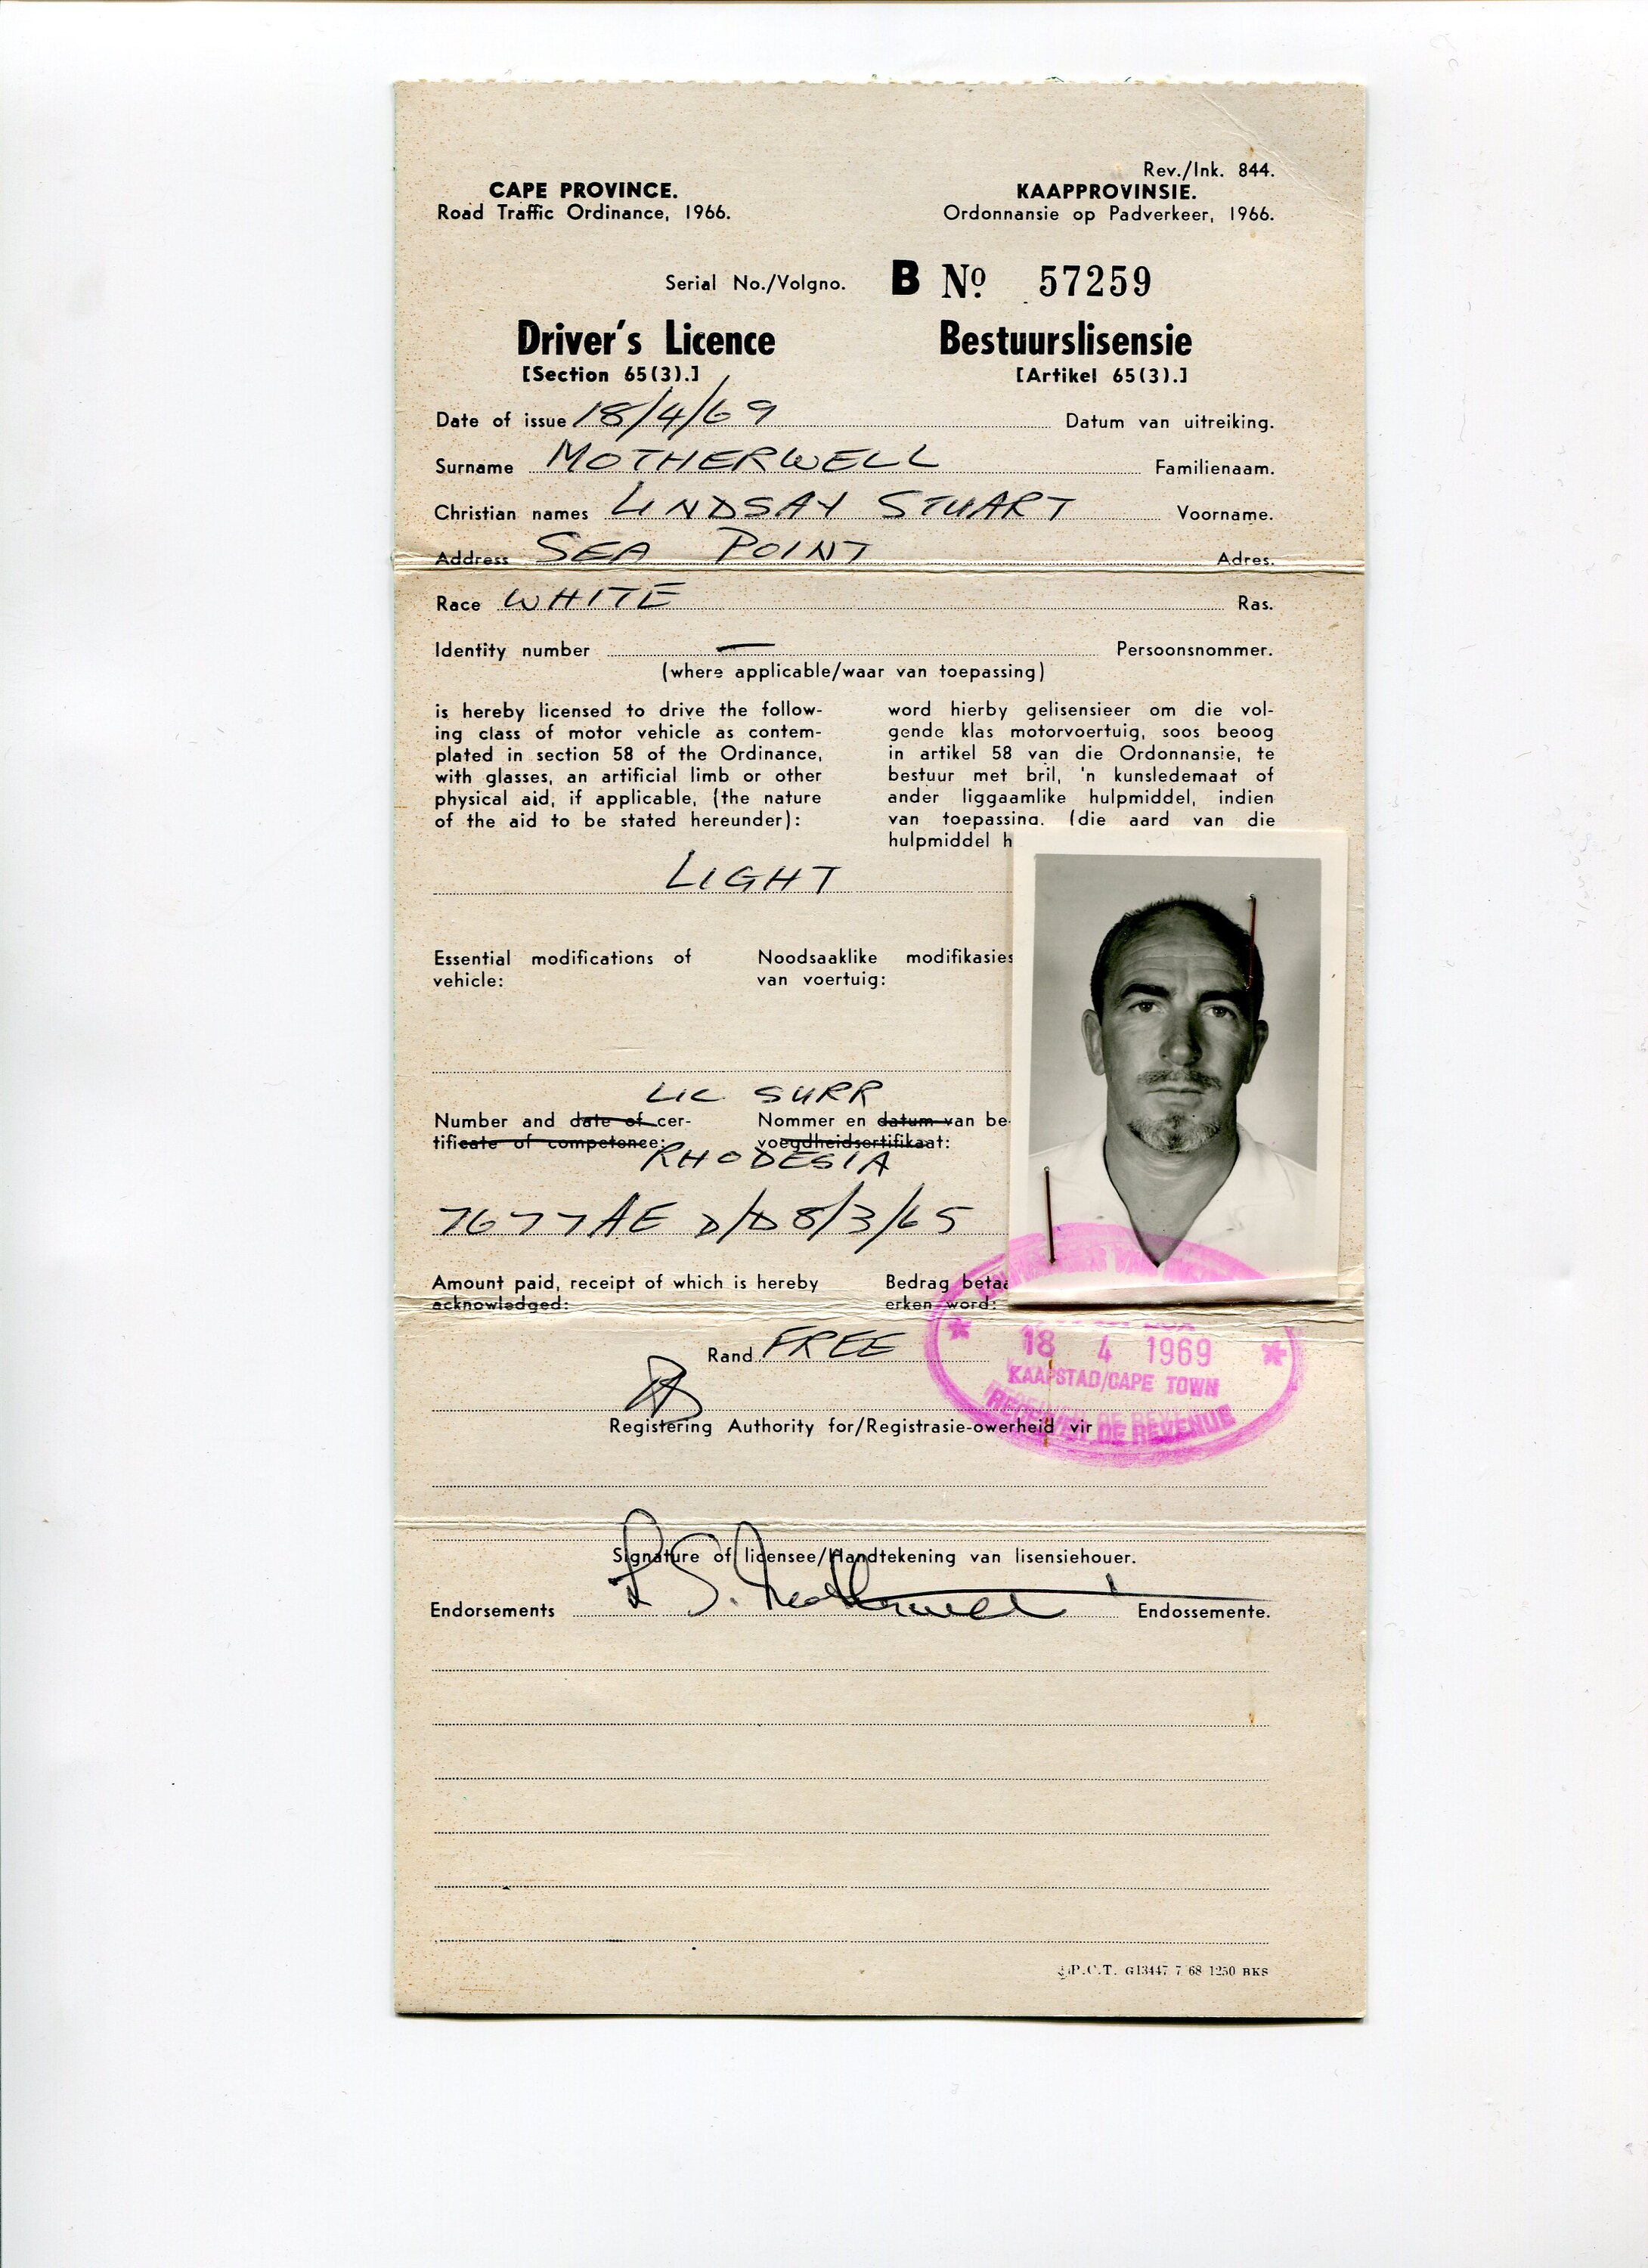 Rev./Ink. 844.
CAPE PROVINCE. KAAPPROVINSIE.
Road Traffic Ordinance, 1966. Ordonnansie op Padverkeer, 1966.
Serial No./Volgno. B No 57259
Driver's Licence Bestuurslisensie
[Section 65(3).] [Artikel 65(3).]
Date of issue 18/4/69 Datum van uitreiking.
Surname MOTHERWELL Familienaam.
Christian names LINDSAY STUART Voorname.
Address SEA POINT Adres.
Race WHITE Ras.
Identity number — Persoonsnommer.
(where applicable/waar van toepassing)
is hereby licensed to drive the follow-
ing class of motor vehicle as contem-
plated in section 58 of the Ordinance,
with glasses, an artificial limb or other
physical aid, if applicable, (the nature
of the aid to be stated hereunder):
word hierby gelisensieer om die vol-
gende klas motorvoertuig, soos beoog
in artikel 58 van die Ordonnansie, te
bestuur met bril, 'n kunsledemaat of
ander liggaamlike hulpmiddel, indien
van toepassing, (die aard van die
hulpmiddel h
LIGHT
Essential modifications of
vehicle:
Noodsaaklike modifikasies
van voertuig:
LIC SURR
Number and date of cer-
tificate of competence:
Nommer en datum van be-
voegdheidsertifikaat:
RHODESIA
7677AE D/D 8/3/65
Amount paid, receipt of which is hereby
acknowledged:
Bedrag betaa
erken word:
Rand FREE
18 4 1969
KAAPSTAD/CAPE TOWN
RECEIVER OF REVENUE
Registering Authority for/Registrasie-owerheid vir
Signature of licensee/Handtekening van lisensiehouer.
L S. Motherwell
Endorsements Endossemente.
P.C.T. G13447 7 68 1250 BKS